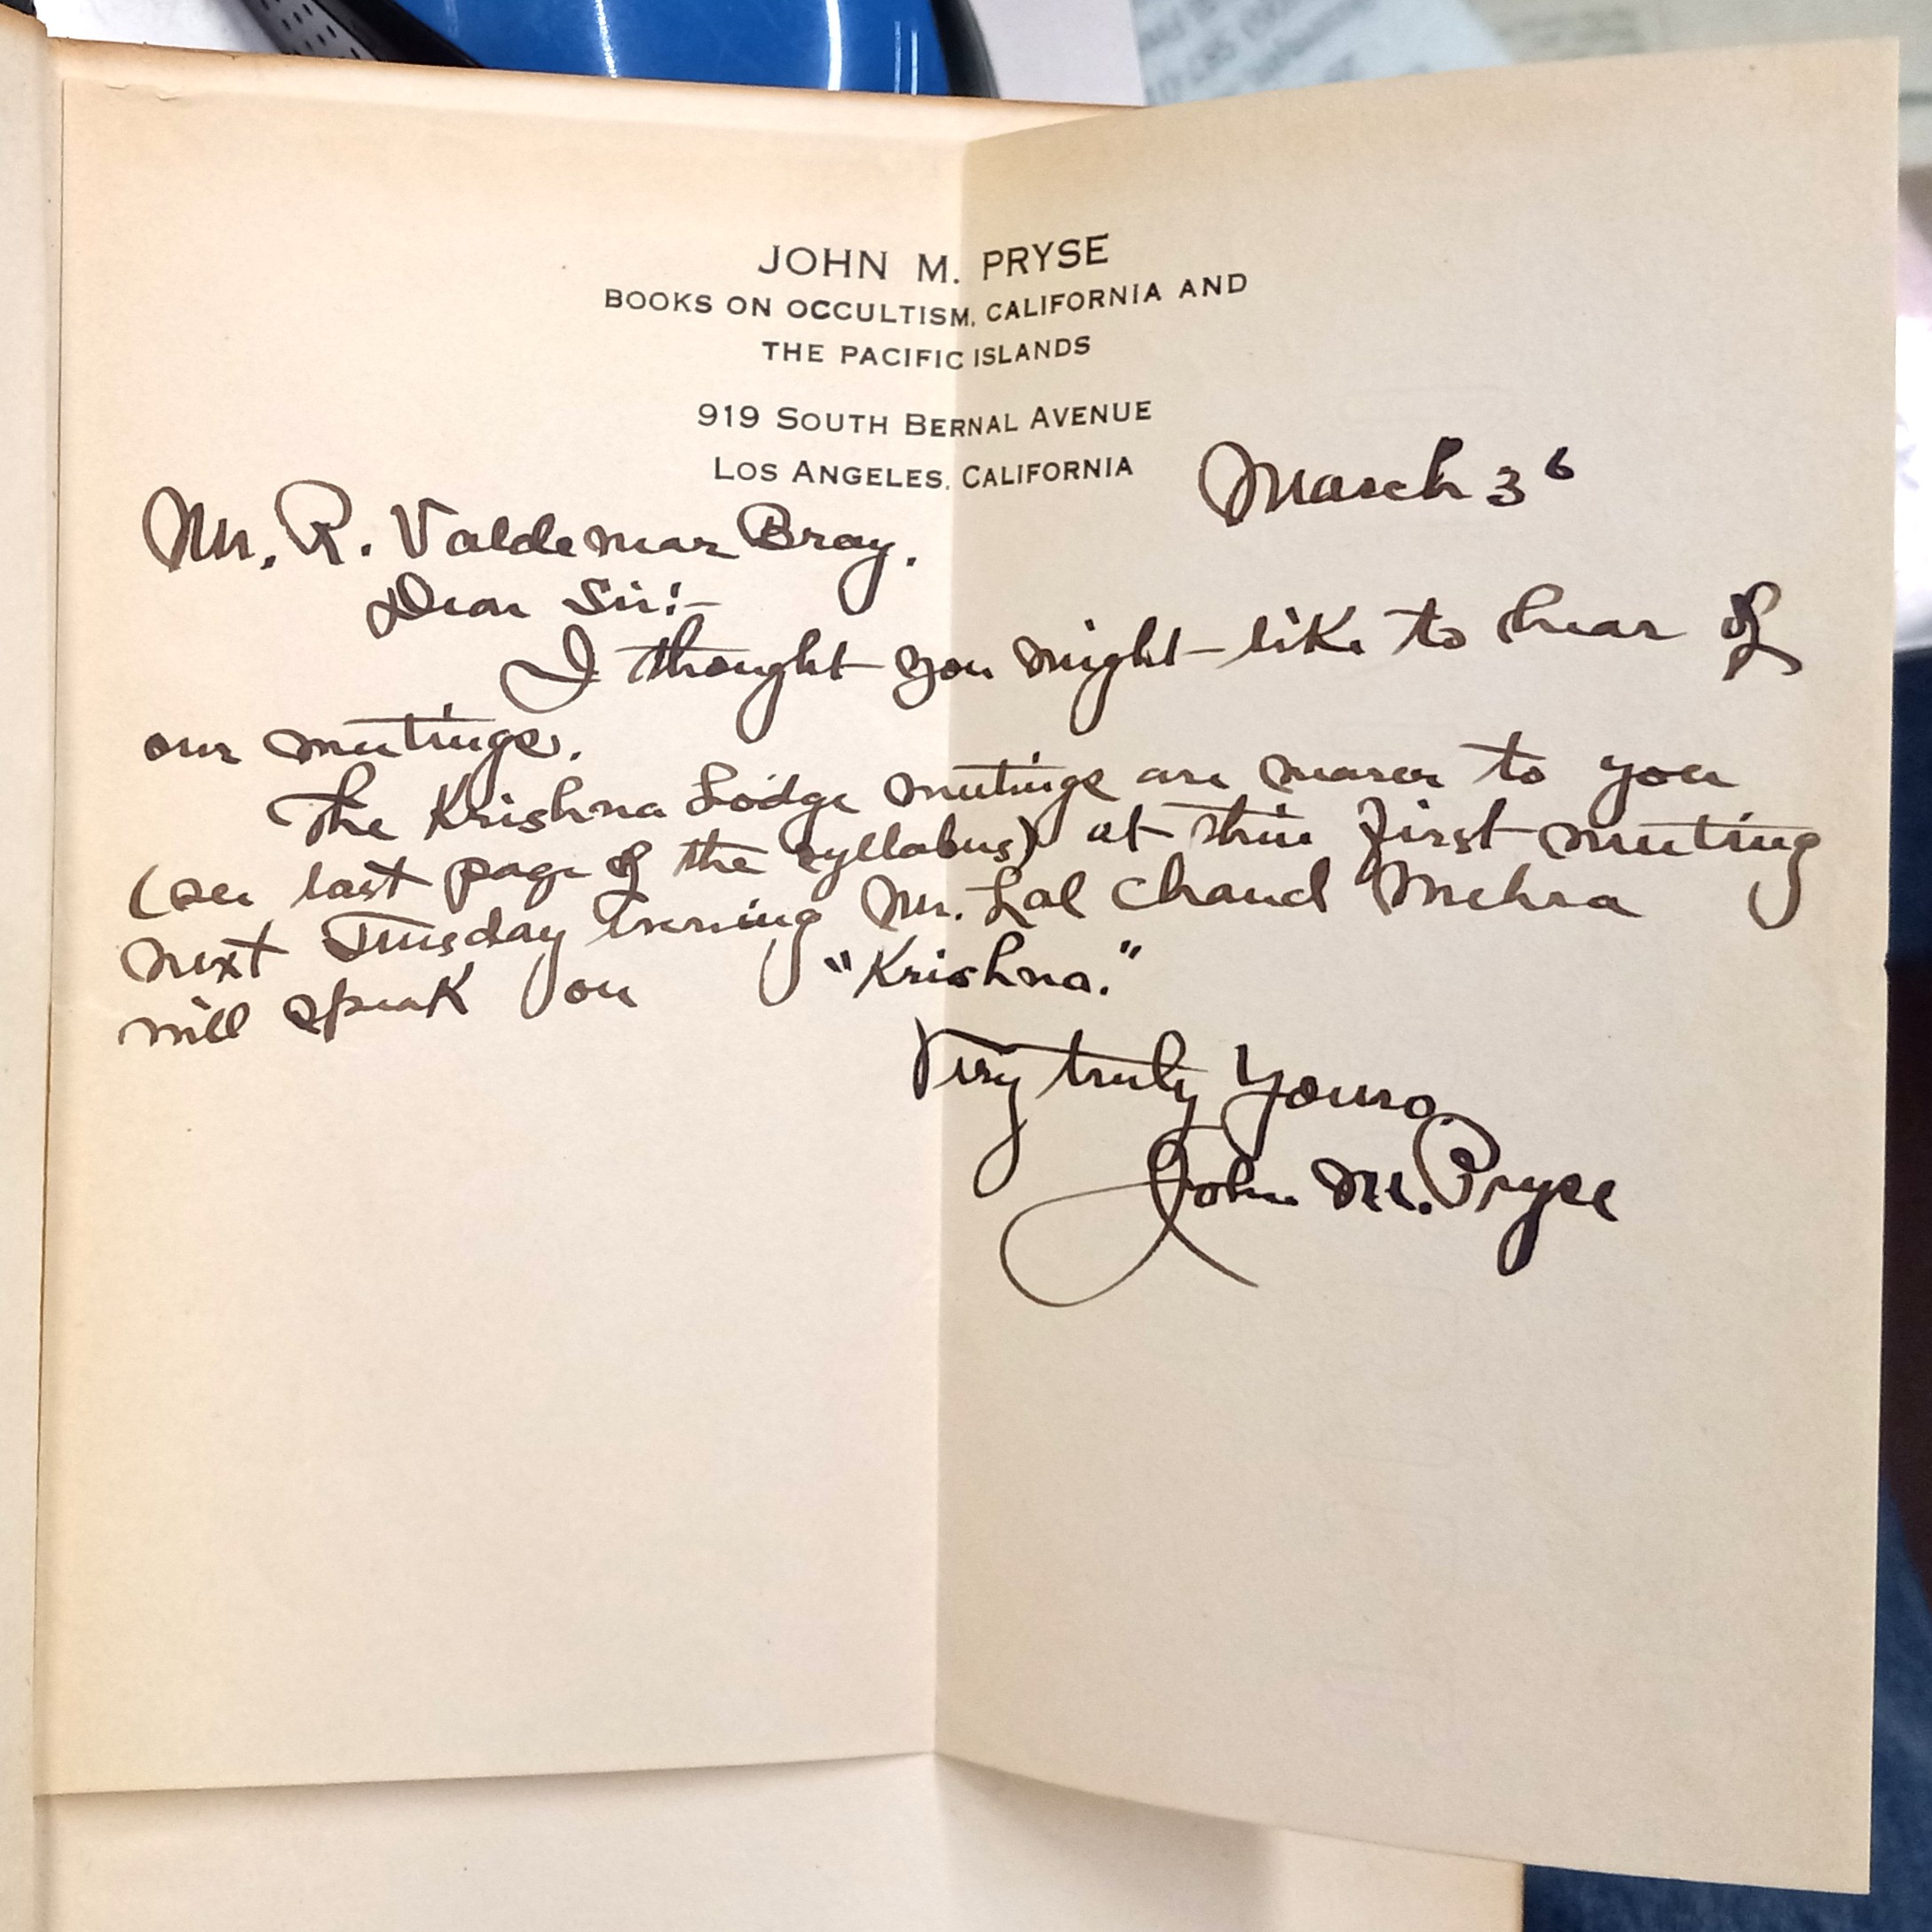 JOHN M. PRYSE
BOOKS ON OCCULTISM, CALIFORNIA AND
THE PACIFIC ISLANDS
919 SOUTH BERNAL AVENUE
LOS ANGELES, CALIFORNIA
March 3 6
Mr. R. Valdemar Bray.
Dear Sir:-
I thought you might like to hear of
our meetings.
The Krishna Lodge meetings are nearer to you
(see last page of the syllabus) at their first meeting
next Tuesday evening Mr. Lal Chand Mehra
will speak on "Krishna."
Very truly yours
John M. Pryse